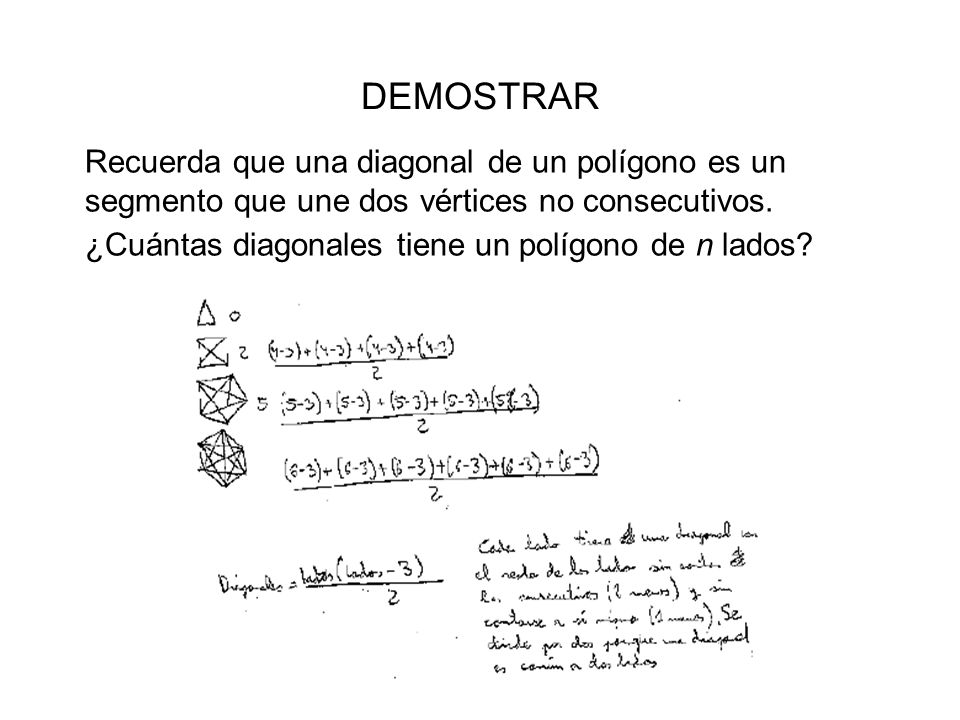 DEMOSTRAR
Recuerda que una diagonal de un polígono es un
segmento que une dos vértices no consecutivos.
¿Cuántas diagonales tiene un polígono de n lados?
0
2 (4-3)+(4-3)+(4-3)+(4-3)
2
5 (5-3)+(5-3)+(5-3)+(5-3)+(5-3)
2
(6-3)+(6-3)+(6-3)+(6-3)+(6-3)+(6-3)
2
Diagonales = lados(lados-3)
2
Cada lado tiene una diagonal con
el resto de los lados sin
los consecutivos (2 menos) y sin
contarse a sí mismo (1 menos). Se
divide por dos porque una diagonal
es común a dos lados